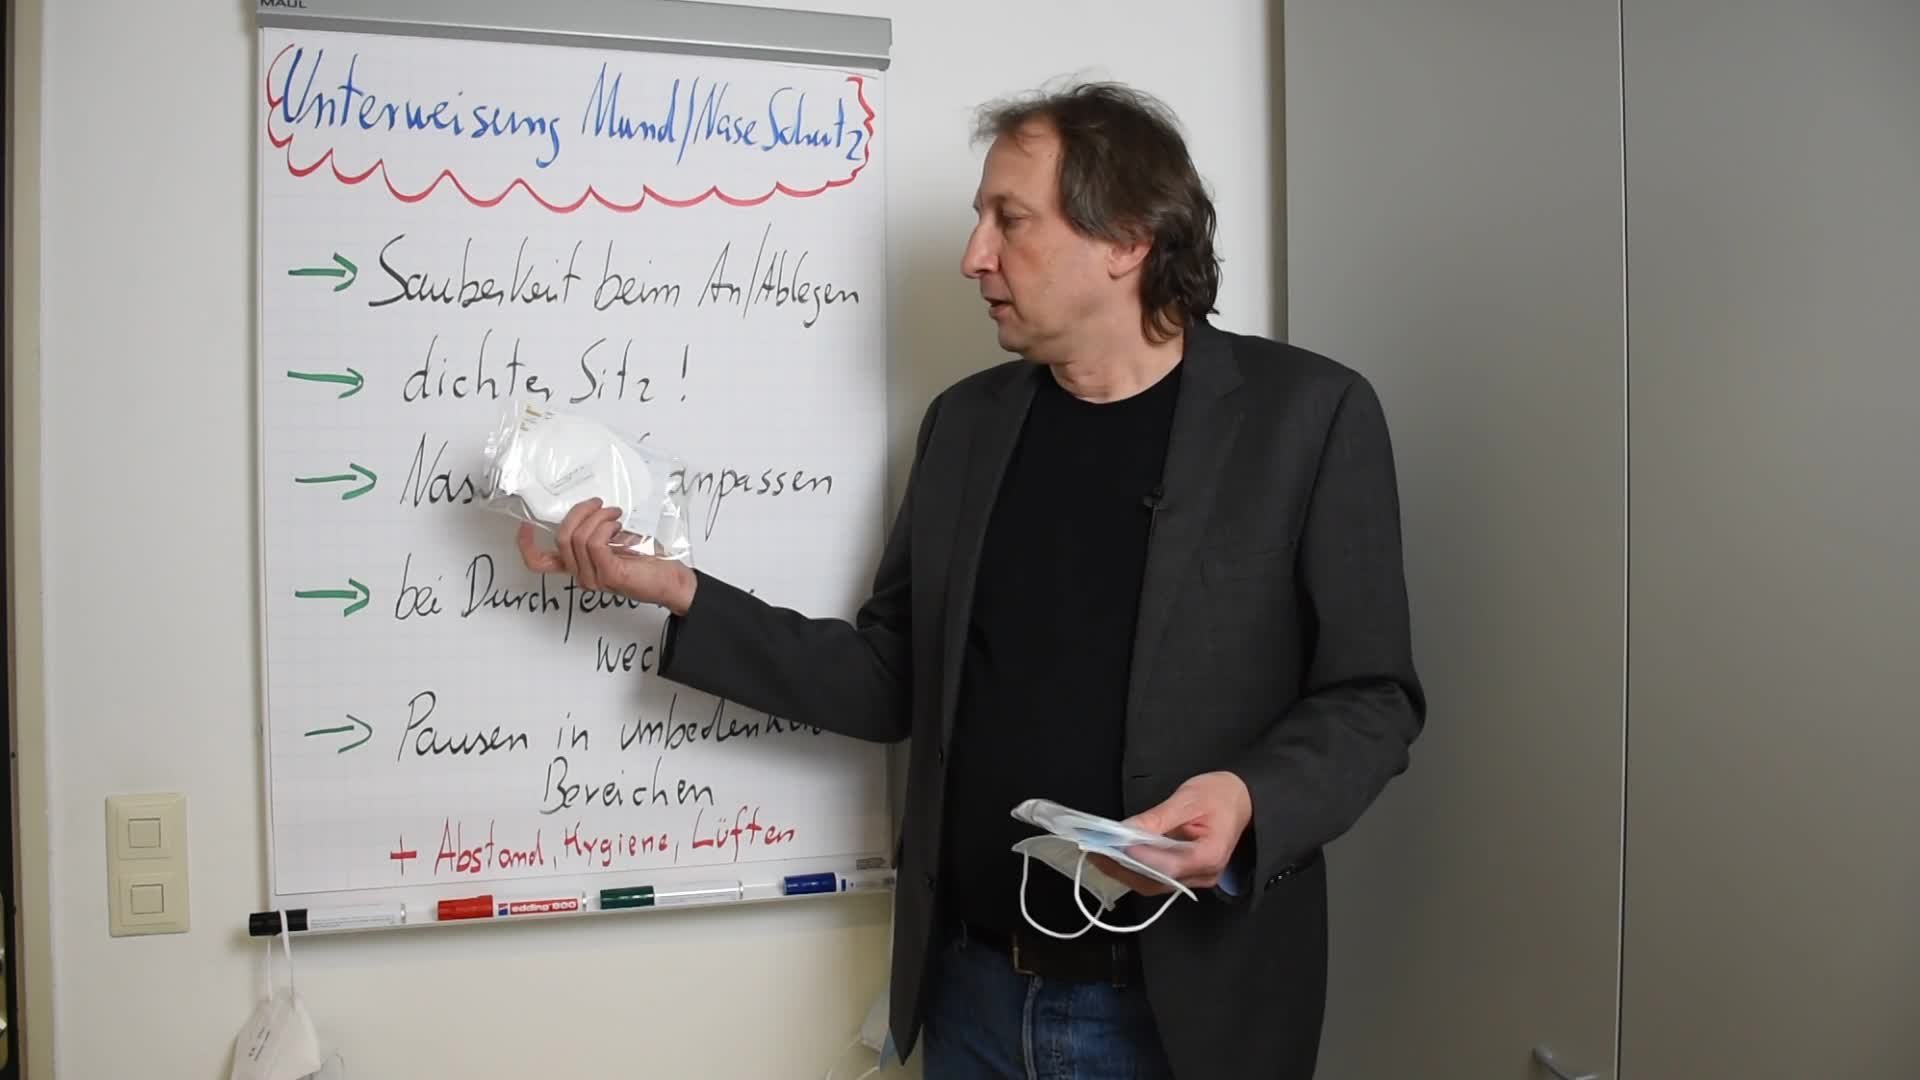 MAUL
Unterweisung Mund/Nase Schutz
→ Sauberkeit beim An/Ablegen
→ dichter Sitz!
→ anpassen
→ bei
→ Pausen in
Bereichen
+ Abstand, Hygiene, Lüften
edding 800